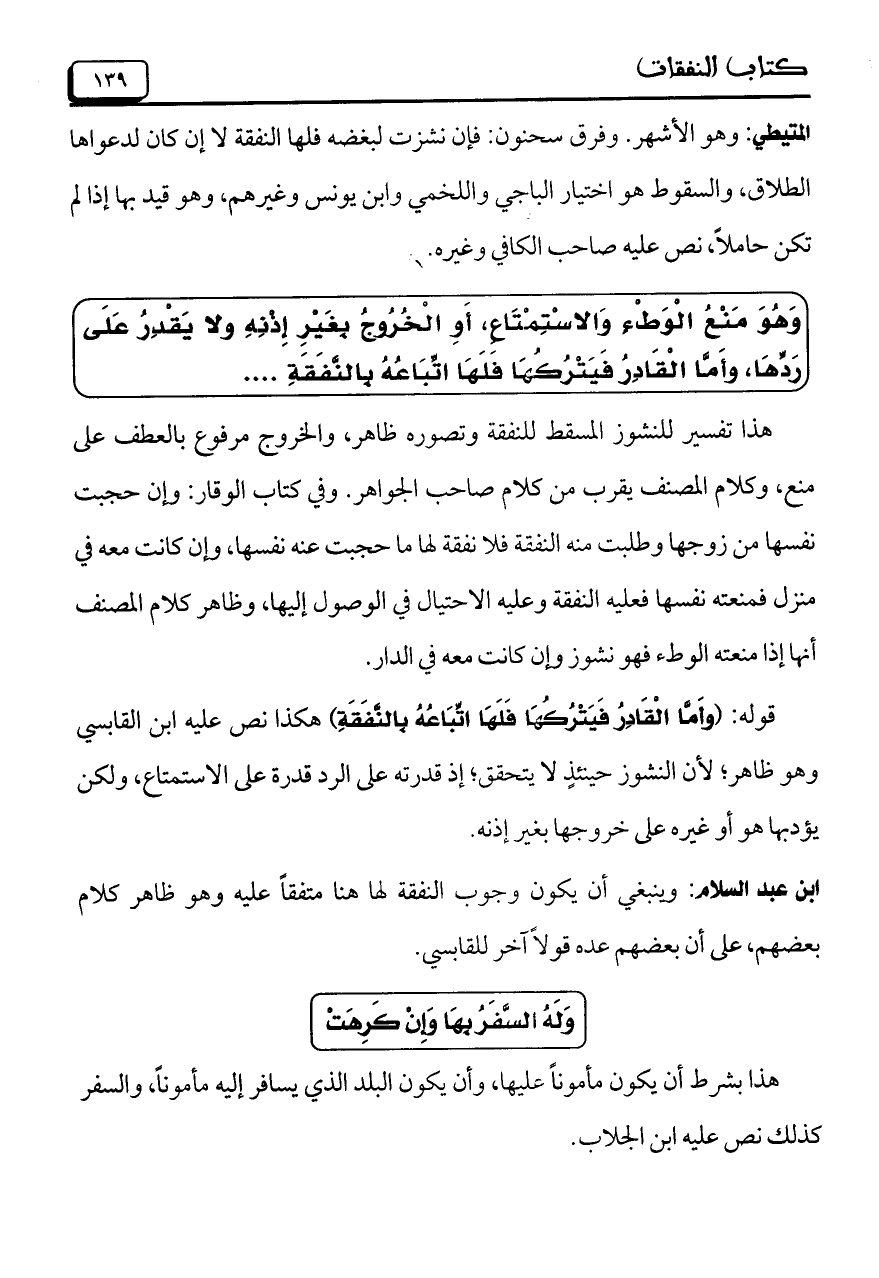 كتاب النفقات
١٣٩
المتيطي: وهو الأشهر. وفرق سحنون: فإن نشزت لبغضه فلها النفقة لا إن كان لدعواها
الطلاق، والسقوط هو اختيار الباجي واللخمي وابن يونس وغيرهم، وهو قيد بها إذا لم
تكن حاملاً، نص عليه صاحب الكافي وغيره.
وَهُوَ مَنْعُ الْوَطْءِ وَالاسْتِمْتَاعِ، أَوِ الْخُرُوجُ بِغَيْرِ إِذْنِهِ ولا يَقْدِرُ عَلَى
رَدِّهَا، وأَمَّا الْقَادِرُ فَيَتْرُكُهَا فَلَهَا اتِّبَاعُهُ بِالنَّفَقَةِ ....
هذا تفسير للنشوز المسقط للنفقة وتصوره ظاهر، والخروج مرفوع بالعطف على
منع، وكلام المصنف يقرب من كلام صاحب الجواهر. وفي كتاب الوقار: وإن حجبت
نفسها من زوجها وطلبت منه النفقة فلا نفقة لها ما حجبت عنه نفسها، وإن كانت معه في
منزل فمنعته نفسها فعليه النفقة وعليه الاحتيال في الوصول إليها، وظاهر كلام المصنف
أنها إذا منعته الوطء فهو نشوز وإن كانت معه في الدار.
قوله: (وأَمَّا الْقَادِرُ فَيَتْرُكُهَا فَلَهَا اتِّبَاعُهُ بِالنَّفَقَةِ) هكذا نص عليه ابن القابسي
وهو ظاهر؛ لأن النشوز حينئذٍ لا يتحقق؛ إذ قدرته على الرد قدرة على الاستمتاع، ولكن
يؤدبها هو أو غيره على خروجها بغير إذنه.
ابن عبد السلام: وينبغي أن يكون وجوب النفقة لها هنا متفقاً عليه وهو ظاهر كلام
بعضهم، على أن بعضهم عده قولاً آخر للقابسي.
وَلَهُ السَّفَرُ بِهَا وَإِنْ كَرِهَتْ
هذا بشرط أن يكون مأموناً عليها، وأن يكون البلد الذي يسافر إليه مأموناً، والسفر
كذلك نص عليه ابن الجلاب.